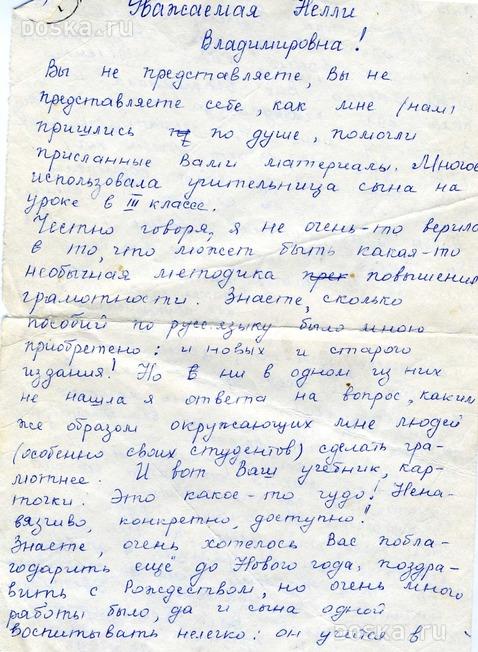 Уважаемая Нелли
Владимировна!
Вы не представляете, Вы не
представляете себе, как мне (нам)
пришлись по душе, помогли
присланные Вами материалы. Многое
использовала учительница сына на
уроке в III классе.
Честно говоря, я не очень-то верила
в то, что может быть какая-то
необычная методика повышения
грамотности. Знаете, сколько
пособий по русс. языку было мною
приобретено: и новых и старого
издания! Но в ни в одном из них
не нашла я ответа на вопрос, каким
же образом окружающих мне людей
(особенно своих студентов) сделать гра-
мотнее. И вот Ваш учебник, кар-
точки. Это какое-то чудо! Нена-
вязчиво, конкретно, доступно!
Знаете, очень хотелось Вас побла-
годарить ещё до Нового года, поздра-
вить с Рождеством, но очень много
работы было, да и сына одной
воспитывать нелегко: он учится в
doska.ru
doska.ru
doska.ru
doska.ru